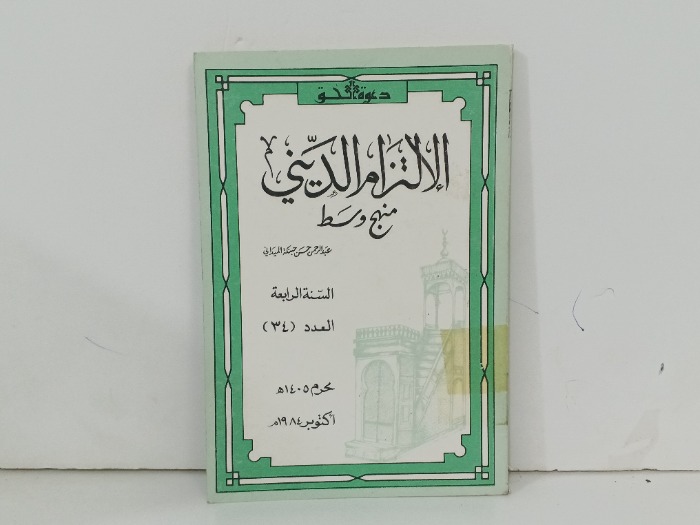 دعوة الحق
الإلتزام الديني
منهج وسط
عبد الرحمن حسن حبنكة الميداني
السنة الرابعة
العدد (٣٤)
محرم ١٤٠٥ه
أكتوبر ١٩٨٤م